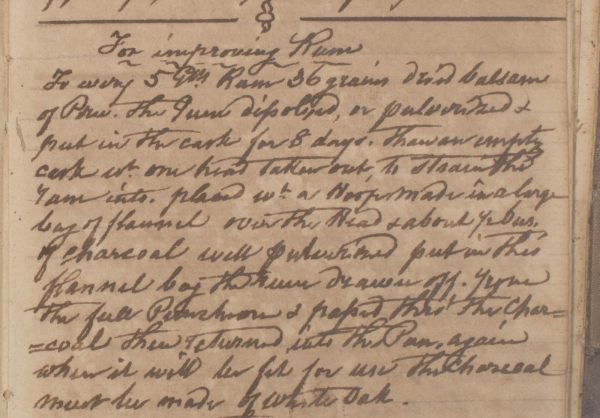 For improving Rum
To every 5 Glls Rum 36 grains dried balsam
of Peru. the Gum dissolved, or pulverized &
put in the cask for 8 days. Then an empty
cask wt. one head taken out, to strain the
into. placed wt. a Hoop made in a large
bag of flannel over the Head & about bus.
of charcoal well pulverized put in this
flannel bag the rum drawn off. from
the full Puncheon & passed thro' the Char=
=coal then returned into the Pun. again
when it will be fit for use the Charcoal
must be made of White Oak.